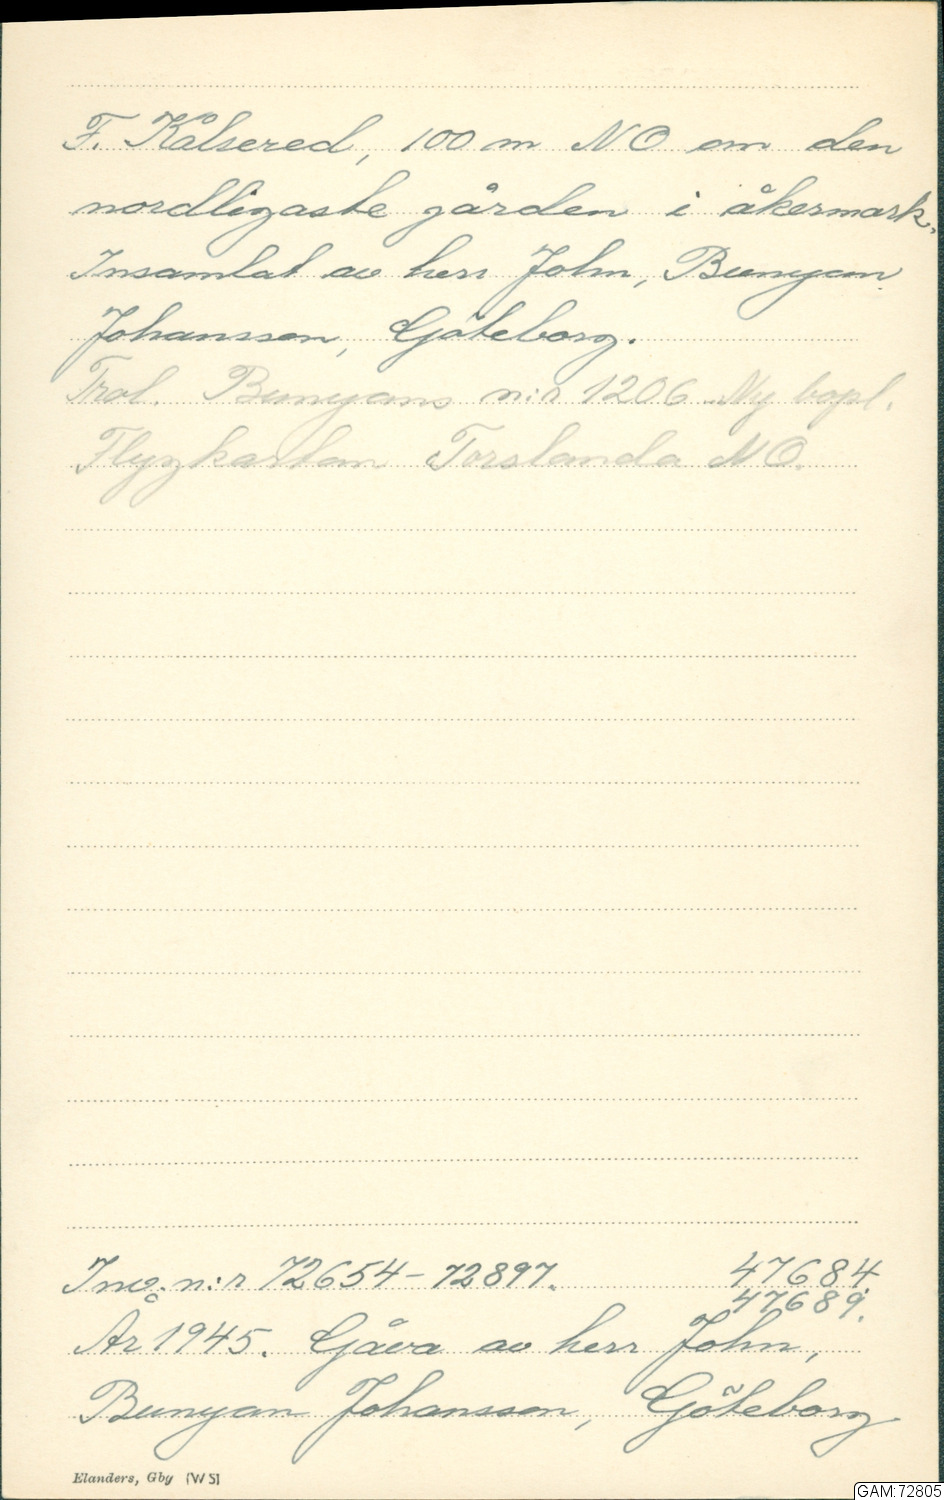 F. Kålsered, 100 m NO om den
nordligaste gården i åkermark.
Insamlat av herr John, Bunyan
Johansson, Göteborg.
Trol. Bunyans n:r 1206. Ny bopl.
Flygkartan Torslanda NO.
Inv. n:r 72654-72897. 47684
47689.
År 1945. Gåva av herr John,
Bunyan Johansson, Göteborg
Elanders, Gby (W 5)
GAM:72805